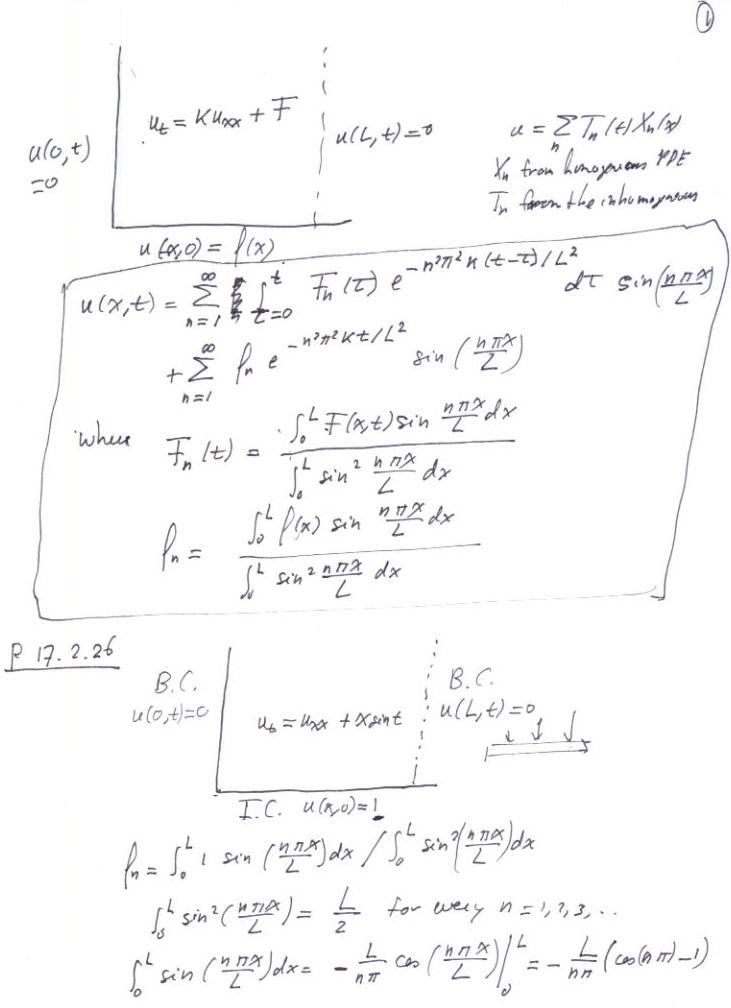 1
u_t = K u_xx + F
u(0,t)
=0
u(L,t)=0
u = Σ_n T_n(t) X_n(x)
X_n from homogeneous PDE
T_n from the inhomogeneous
u(x,0) = f(x)
u(x,t) = Σ_{n=1}^∞ ∫_{τ=0}^t F_n(τ) e^{-n²π²K(t-τ)/L²} dτ sin(nπx/L)
+ Σ_{n=1}^∞ f_n e^{-n²π²Kt/L²} sin(nπx/L)
where F_n(t) = ∫_0^L F(x,t) sin nπx/L dx / ∫_0^L sin² nπx/L dx
f_n = ∫_0^L f(x) sin nπx/L dx / ∫_0^L sin² nπx/L dx
P 17.2.26
B.C.
u(0,t)=0
u_t = u_xx + x sin t
B.C.
u(L,t)=0
I.C. u(x,0)=1
f_n = ∫_0^L 1 sin(nπx/L)dx / ∫_0^L sin²(nπx/L)dx
∫_0^L sin²(nπx/L) = L/2 for every n = 1,2,3,..
∫_0^L sin(nπx/L)dx = -L/nπ cos(nπx/L)|_0^L = -L/nπ (cos(nπ)-1)